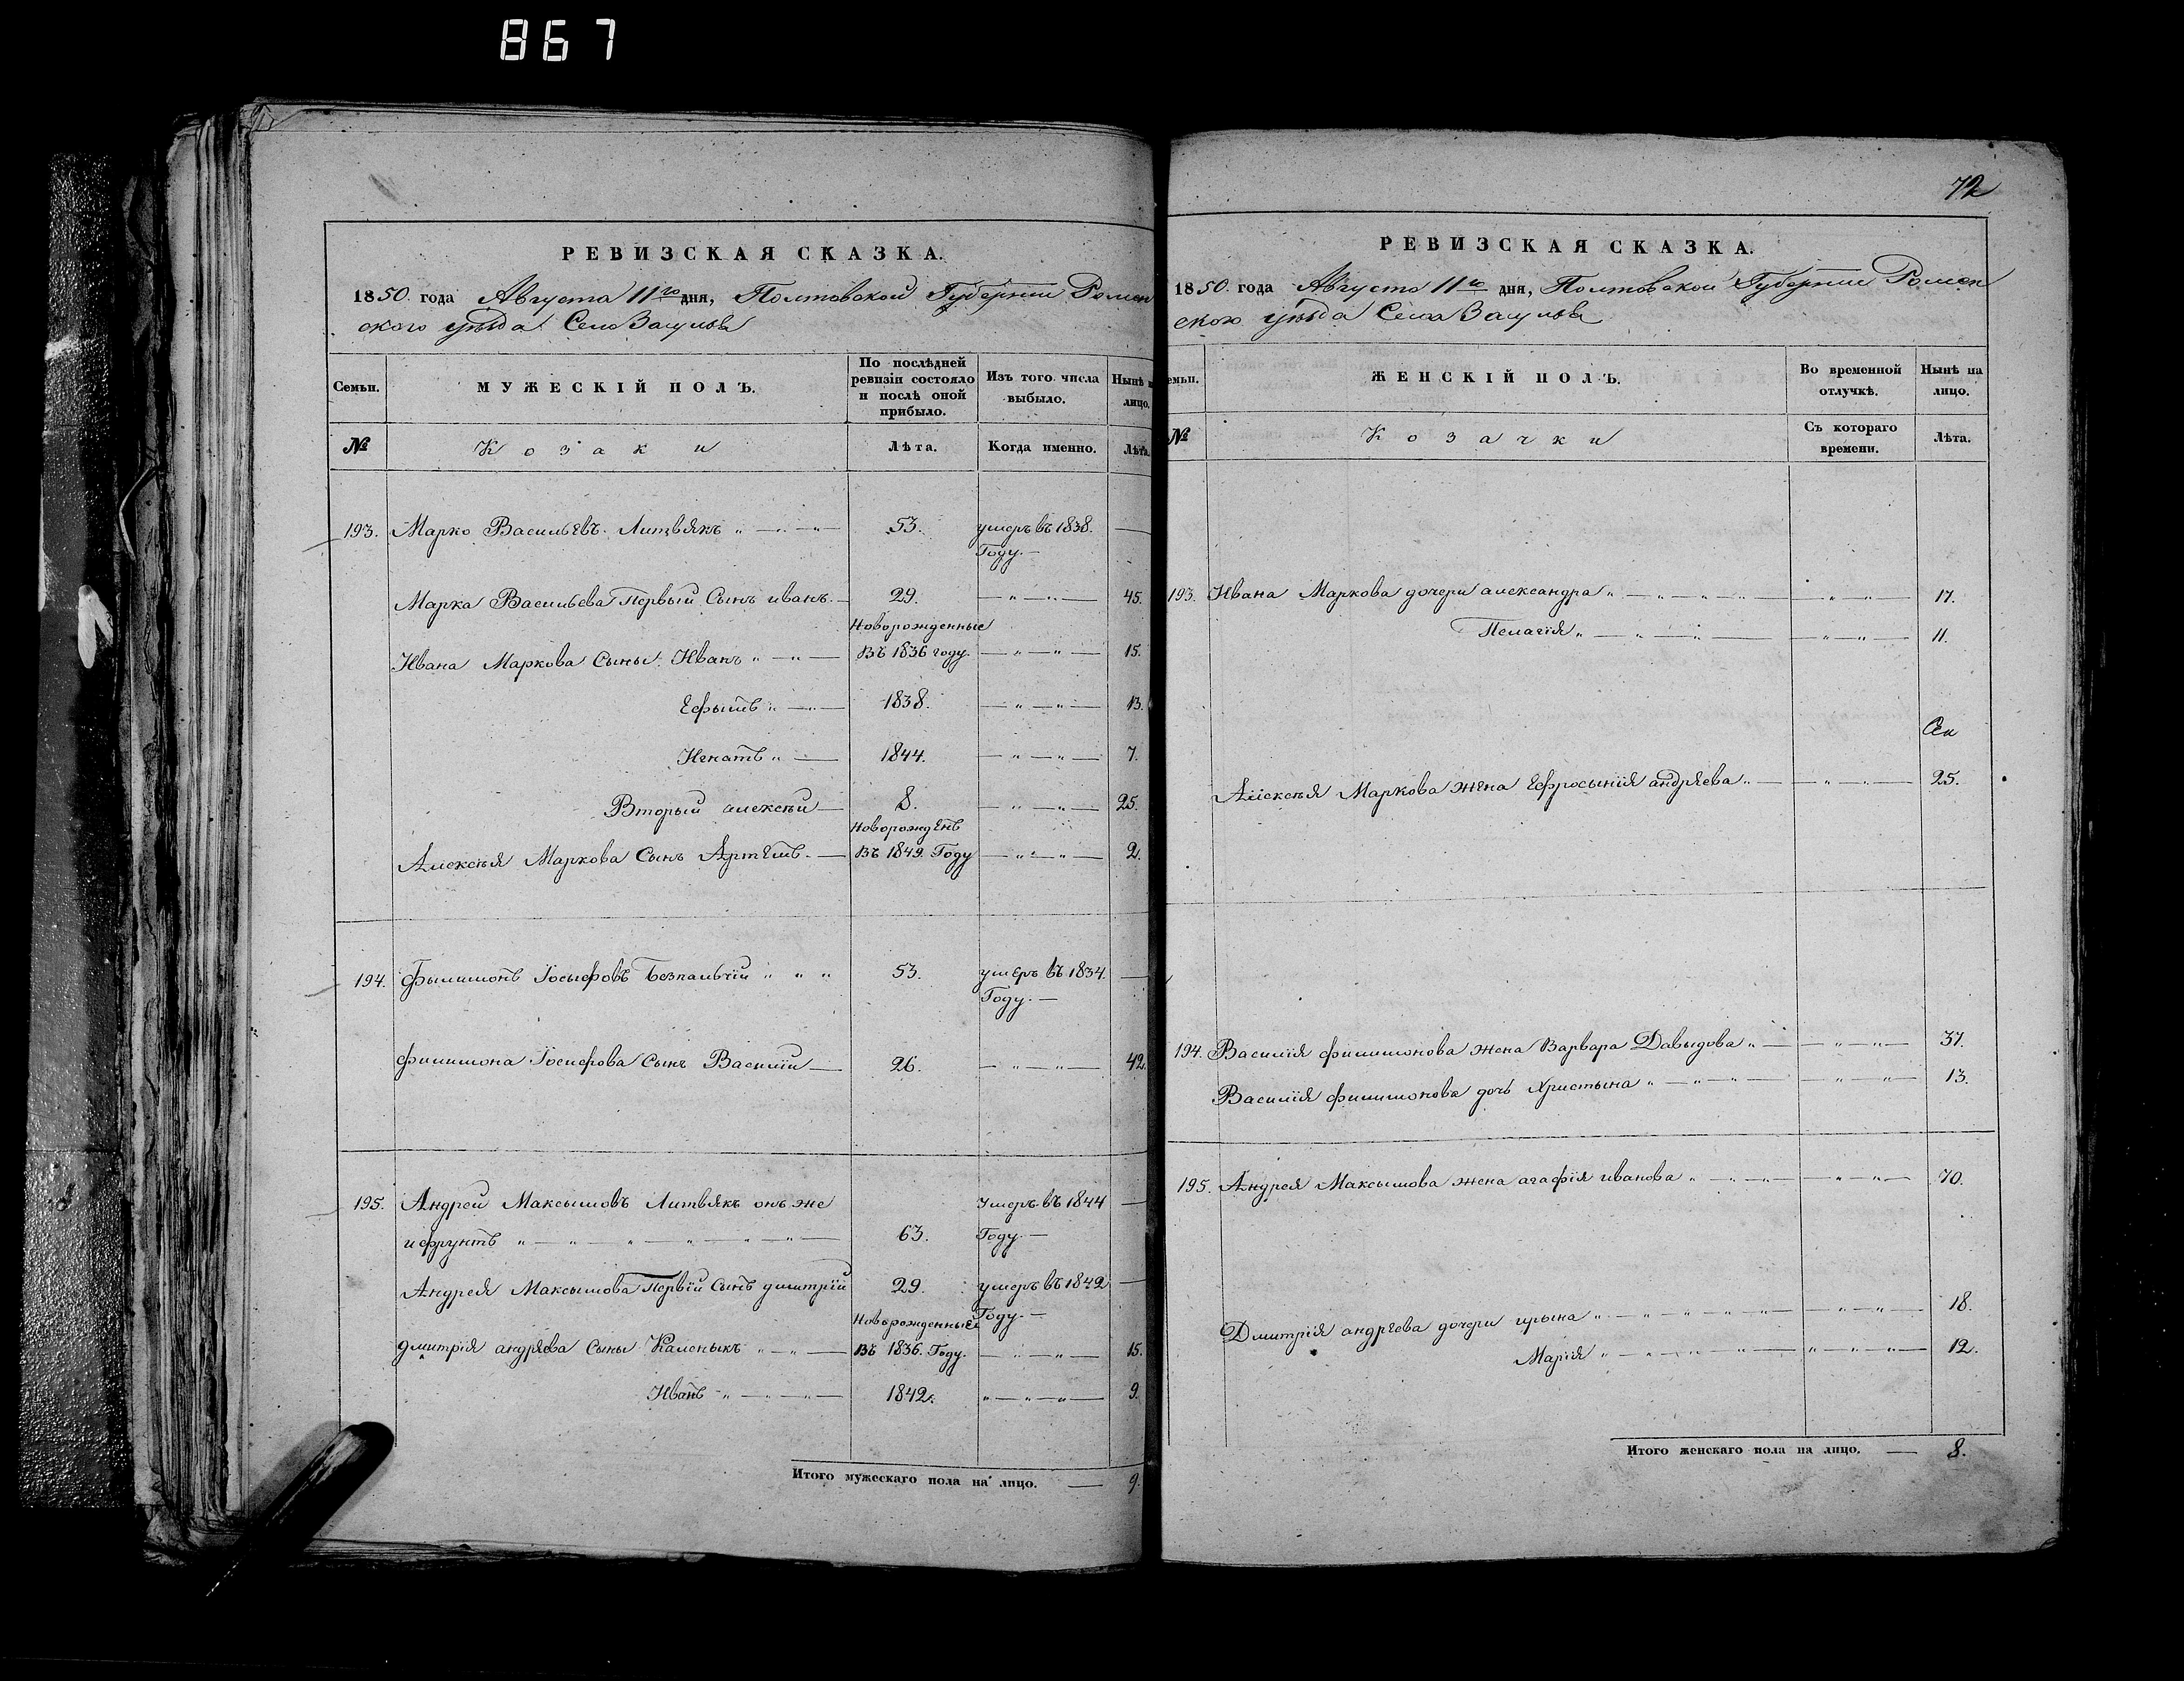 867
РЕВИЗСКАЯ СКАЗКА.
1850 года Августа 11го дня, Полтавской Губернии Ромен
ского уѣзда Села Засулья
Семьи. МУЖЕСКІЙ ПОЛЪ. По послѣдней ревизіи состояло и послѣ оной прибыло. Изъ того числа выбыло. Нынѣ лицо.
№ Козаки Лѣта. Когда именно. Лѣта.
193. Марко Васильевъ Литвякъ 53. умеръ въ 1838.
Году.
Марка Васильева Первый Сынъ иванъ 29. 45.
Новорожденные
Ивана Маркова Сыны: Иванъ Въ 1836 году. 15.
Ефымъ 1838. 13.
Игнатъ 1844. 7.
Вторый алексѣй 8. 25.
Новорожденъ
Алексѣя Маркова Сынъ Артемъ. Въ 1849. Году 2.
194. Фылимонъ Іосыфовъ Безпалчій 53. умеръ въ 1834.
Году.
Филимона Іосифова Сынъ Василій 26. 42.
195. Андрей Максымовъ Литвякъ онъ же Умеръ въ 1844
63. Году.
Андрея Максымова Первій Сынъ дмитрій 29. умеръ въ 1842
Новорожденные Году.
дмитрія андрѣева Сыны Каленыкъ Въ 1836. Году. 15.
Иванъ 1842. 9.
Итого мужескаго пола на лицо. 9.
72
РЕВИЗСКАЯ СКАЗКА.
1850 года Августа 11го дня, Полтавской Губернии Ромен
ского уѣзда Села Засулья
емьи. ЖЕНСКІЙ ПОЛЪ. Во временной отлучкѣ. Нынѣ на лицо.
№ Козачки Съ котораго времени. Лѣта.
193. Ивана Маркова дочери александра 17.
Пелагія 11.
Алексѣя Маркова жена Ефросынія андрѣева 25.
194. Василія филимонова жена Варвара Давыдова 37.
Василія филимонова дочь Христына 13.
195. Андрея Максымова жена агафія иванова 70.
Дмитрія андрѣева дочери ирына 18.
Марія 12.
Итого женскаго пола на лицо. 8.